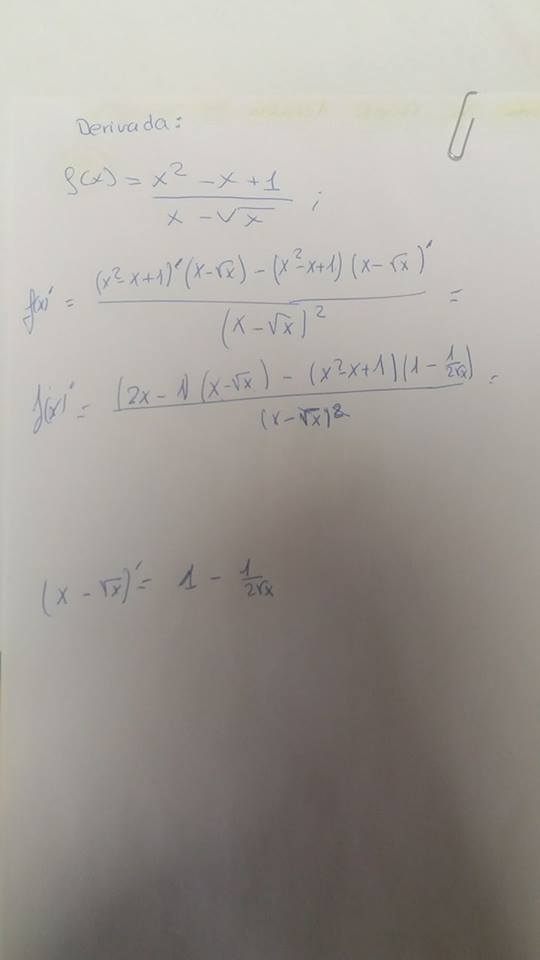 Derivada:
f(x) = x² - x + 1
x - √x ;
f(x)' = (x² - x + 1)' (x - √x) - (x² - x + 1) (x - √x)'
(x - √x)² =
f(x)' = (2x - 1) (x - √x) - (x² - x + 1) (1 - 1/2√x) =
(x - √x)²
(x - √x)' = 1 - 1/2√x